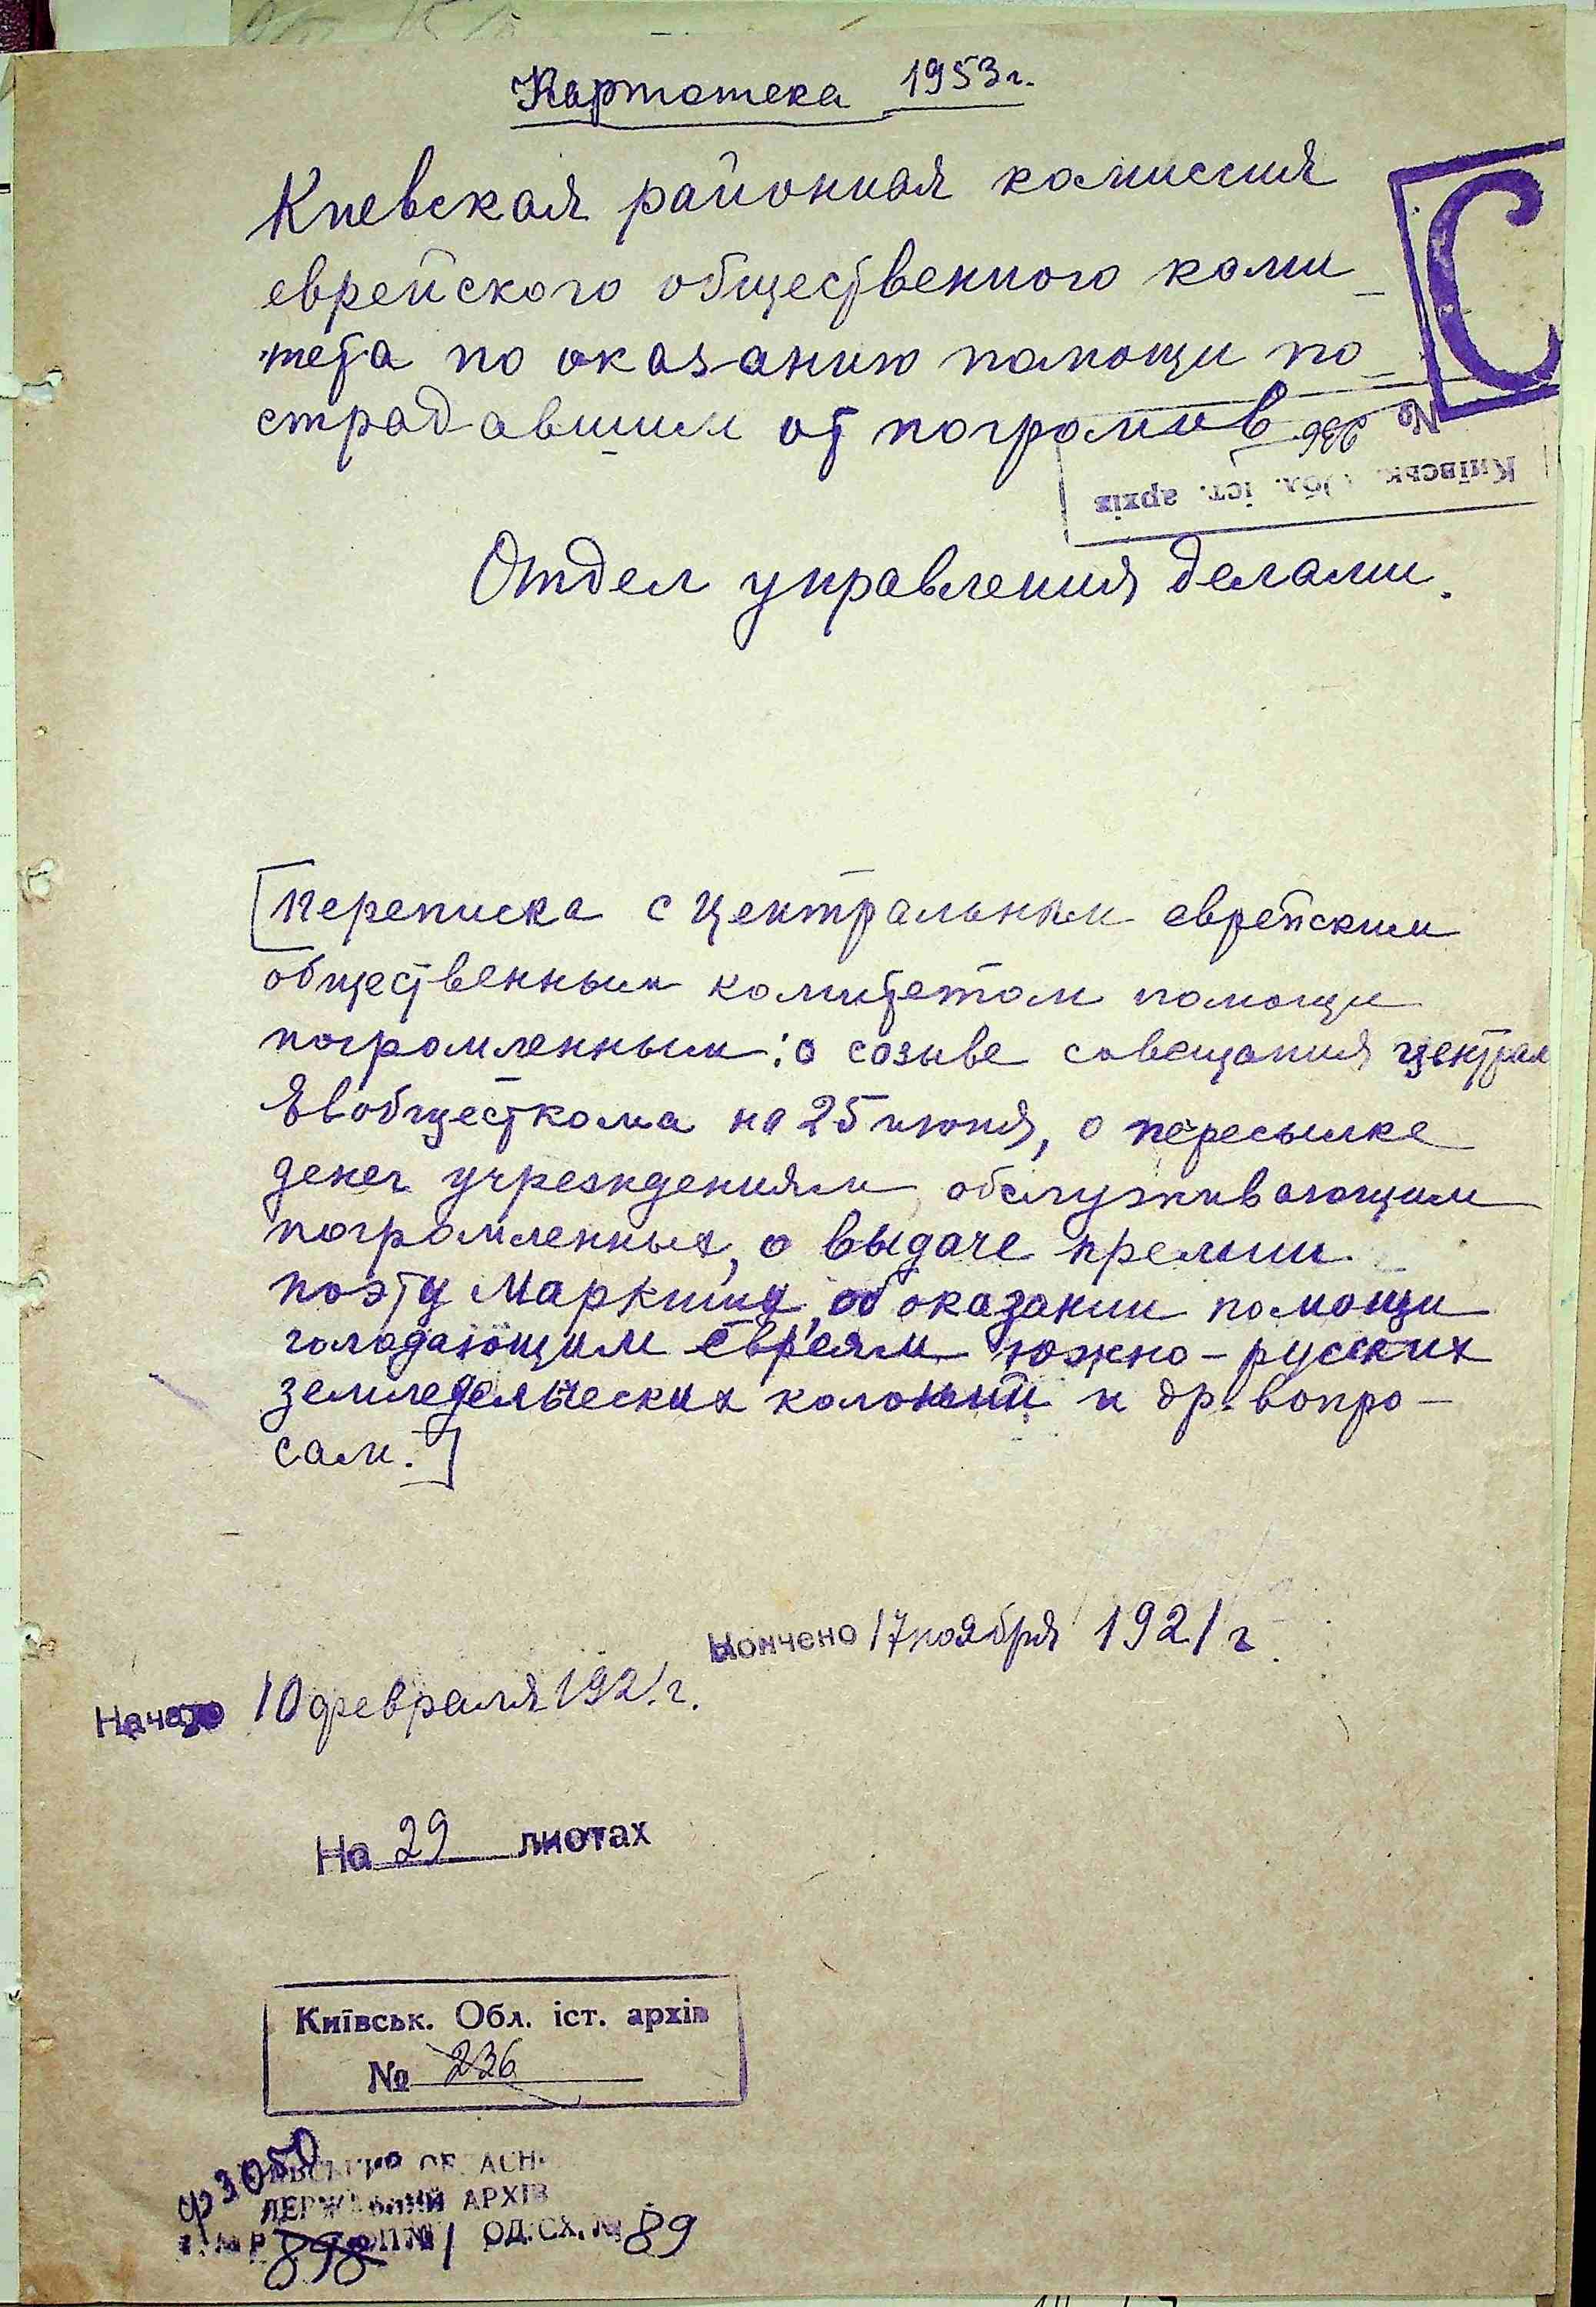 Картотека 1953 г.
С
Киевская районная комиссия
еврейского общественного коми-
тета по оказанию помощи по-
страдавшим от погромов
Київськ. Обл. іст. архів
№ 236
Отдел управления делами.
[Переписка с Центральным еврейским
общественным комитетом помощи
погромленным: о созыве совещания централ
Евобщесткома на 25 июня, о пересылке
денег учреждениям, обслуживающим
погромленных, о выдаче премии
поэту Маркишу, об оказании помощи
голодающим евреям южно-русских
земледельческих колоний и др. вопро-
сам.]
Кончено 17 ноября 1921 г.
Начато 10 февраля 1921 г.
На 29 листах
Київськ. Обл. іст. архів
№ 236
ф 3050
ДЕРЖАВНИЙ АРХІВ
Р 898 ОП № 1 ОД. СХ. № 89